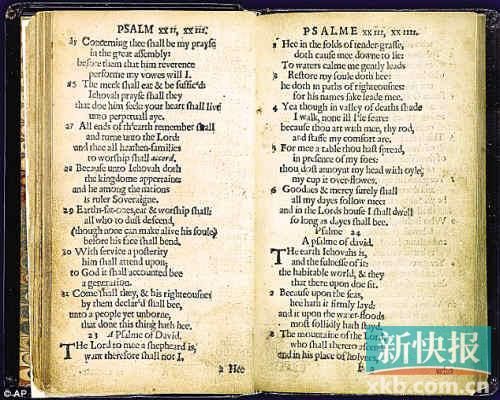 PSALM xxii, xxiii.
25 Concerning thee shall be my prayse
in the great assembly:
before them that him reverence
performe my vowes will I.
26 The meek shall eat & be suffic'd
Iehovah prayse shall they
that doe him seek: your heart shall live
unto perpetuall aye.
27 All ends of th'earth remember shall
and turne unto the Lord:
and thee all heathen-families
to worship shall accord.
28 Because unto Iehovah doth
the kingdome appertaine:
and he among the nations
is ruler Soveraigne.
29 Earths-fat-ones, eat & worship shall:
all who to dust descend,
(though none can make alive his soule)
before his face shall bend.
30 With service a posterity
him shall attend upon;
to God it shall accounted bee
a generation.
31 Come shall they, & his righteousnes
by them declar'd shall bee,
unto a people yet unborne,
that done this thing hath hee.
23 A Psalme of David.
The Lord to mee a shepheard is,
want therefore shall not I.
2 Hee
PSALME xxiii, xxiiii.
2 Hee in the folds of tender-grasse,
doth cause mee downe to lie:
To waters calme me gently leads
3 Restore my soule doth hee:
he doth in paths of righteousnes:
for his names sake leade mee.
4 Yea though in valley of deaths shade
I walk, none ill I'le feare:
because thou art with mee, thy rod,
and staffe my comfort are.
5 For mee a table thou hast spread,
in presence of my foes:
thou dost annoynt my head with oyle,
my cup it over-flowes.
6 Goodnes & mercy surely shall
all my dayes follow mee:
and in the Lords house I shall dwell
so long as dayes shall bee.
Psalme 24
A psalme of david.
The earth Iehovahs is,
and the fulnesse of it:
the habitable world, & they
that there upon doe sit.
2 Because upon the seas,
hee hath it firmly layd:
and it upon the water-floods
most sollidly hath stayd.
3 The mountaine of the Lord
who shall thereto ascend
and in his place of holynes,
新快报
xkb.com.cn
© AP